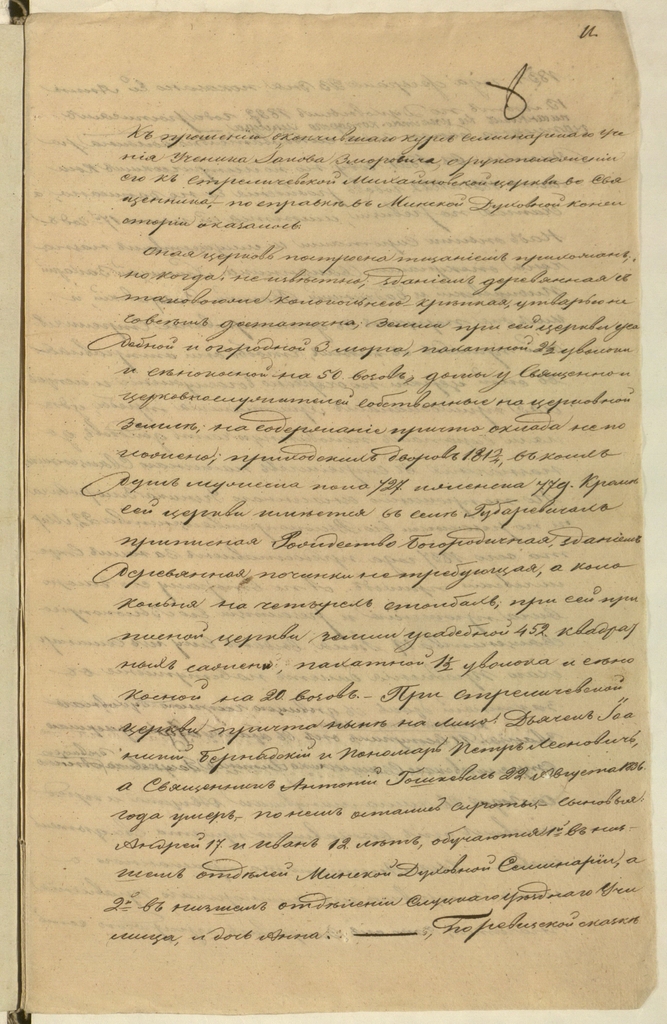 11.
Къ прошенію окончившаго курсъ семинарскаго уче
нія Ученика Іакова Зморовича о рукоположеніи
его къ Стреличевской Михайловской церкви во Свя
щенника, по справкѣ въ Минской Духовной Конси
сторіи оказалось
оная церковь построена тщаніемъ прихожанъ,
но когда, не извѣстно, зданіемъ деревянная съ
таковоюже колокольнею крѣпкая, утварью не
совсѣмъ достаточна; земли при сей церкви уса
дебной и огородной 3 морга, пахатной 2½ уволоки
и сѣнокосной на 50 возовъ, домы у Священно и
церковнослужителей собственные на церковной
землѣ; на содержаніе причта оклада не по
ложено; приходскихъ дворовъ 181½, въ коихъ
Душъ мужеска пола 727. и женска 779. Кромѣ
сей церкви имѣется въ селѣ Губаревичахъ
приписная Рождество Богородичная, зданіемъ
деревянная, починки не требующая, а коло
кольня на четырехъ столбахъ; при сей при
писной церкви земли усадебной 452 квадрат
ныхъ сажень, пахатной 1½ уволока и сѣно
косной на 20 возовъ. – При Стреличевской
церкви причта нынѣ на лицо: Дьячекъ Іоа
нній Бернадскій и Пономарь Петръ Леоновичъ,
а Священникъ Антоній Гошкевичъ 22 Августа 1836
года умеръ, – по немъ остались сироты – сыновья:
Андрей 17 и Иванъ 12 лѣтъ, обучаются 1й въ низ-
шемъ отдѣленіи Минской Духовной Семинаріи, а
2й въ низшемъ отдѣленіи Слуцкаго уѣзднаго Учи
лища, и дочь Анна. ——— По ревизской сказкѣ